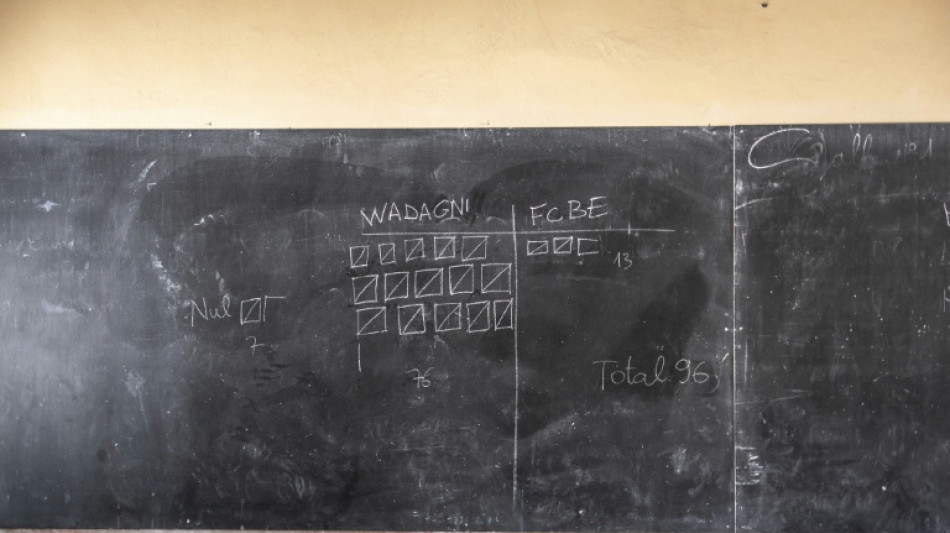 WADAGNI FCBE
13
Nul
7
76
Total 96